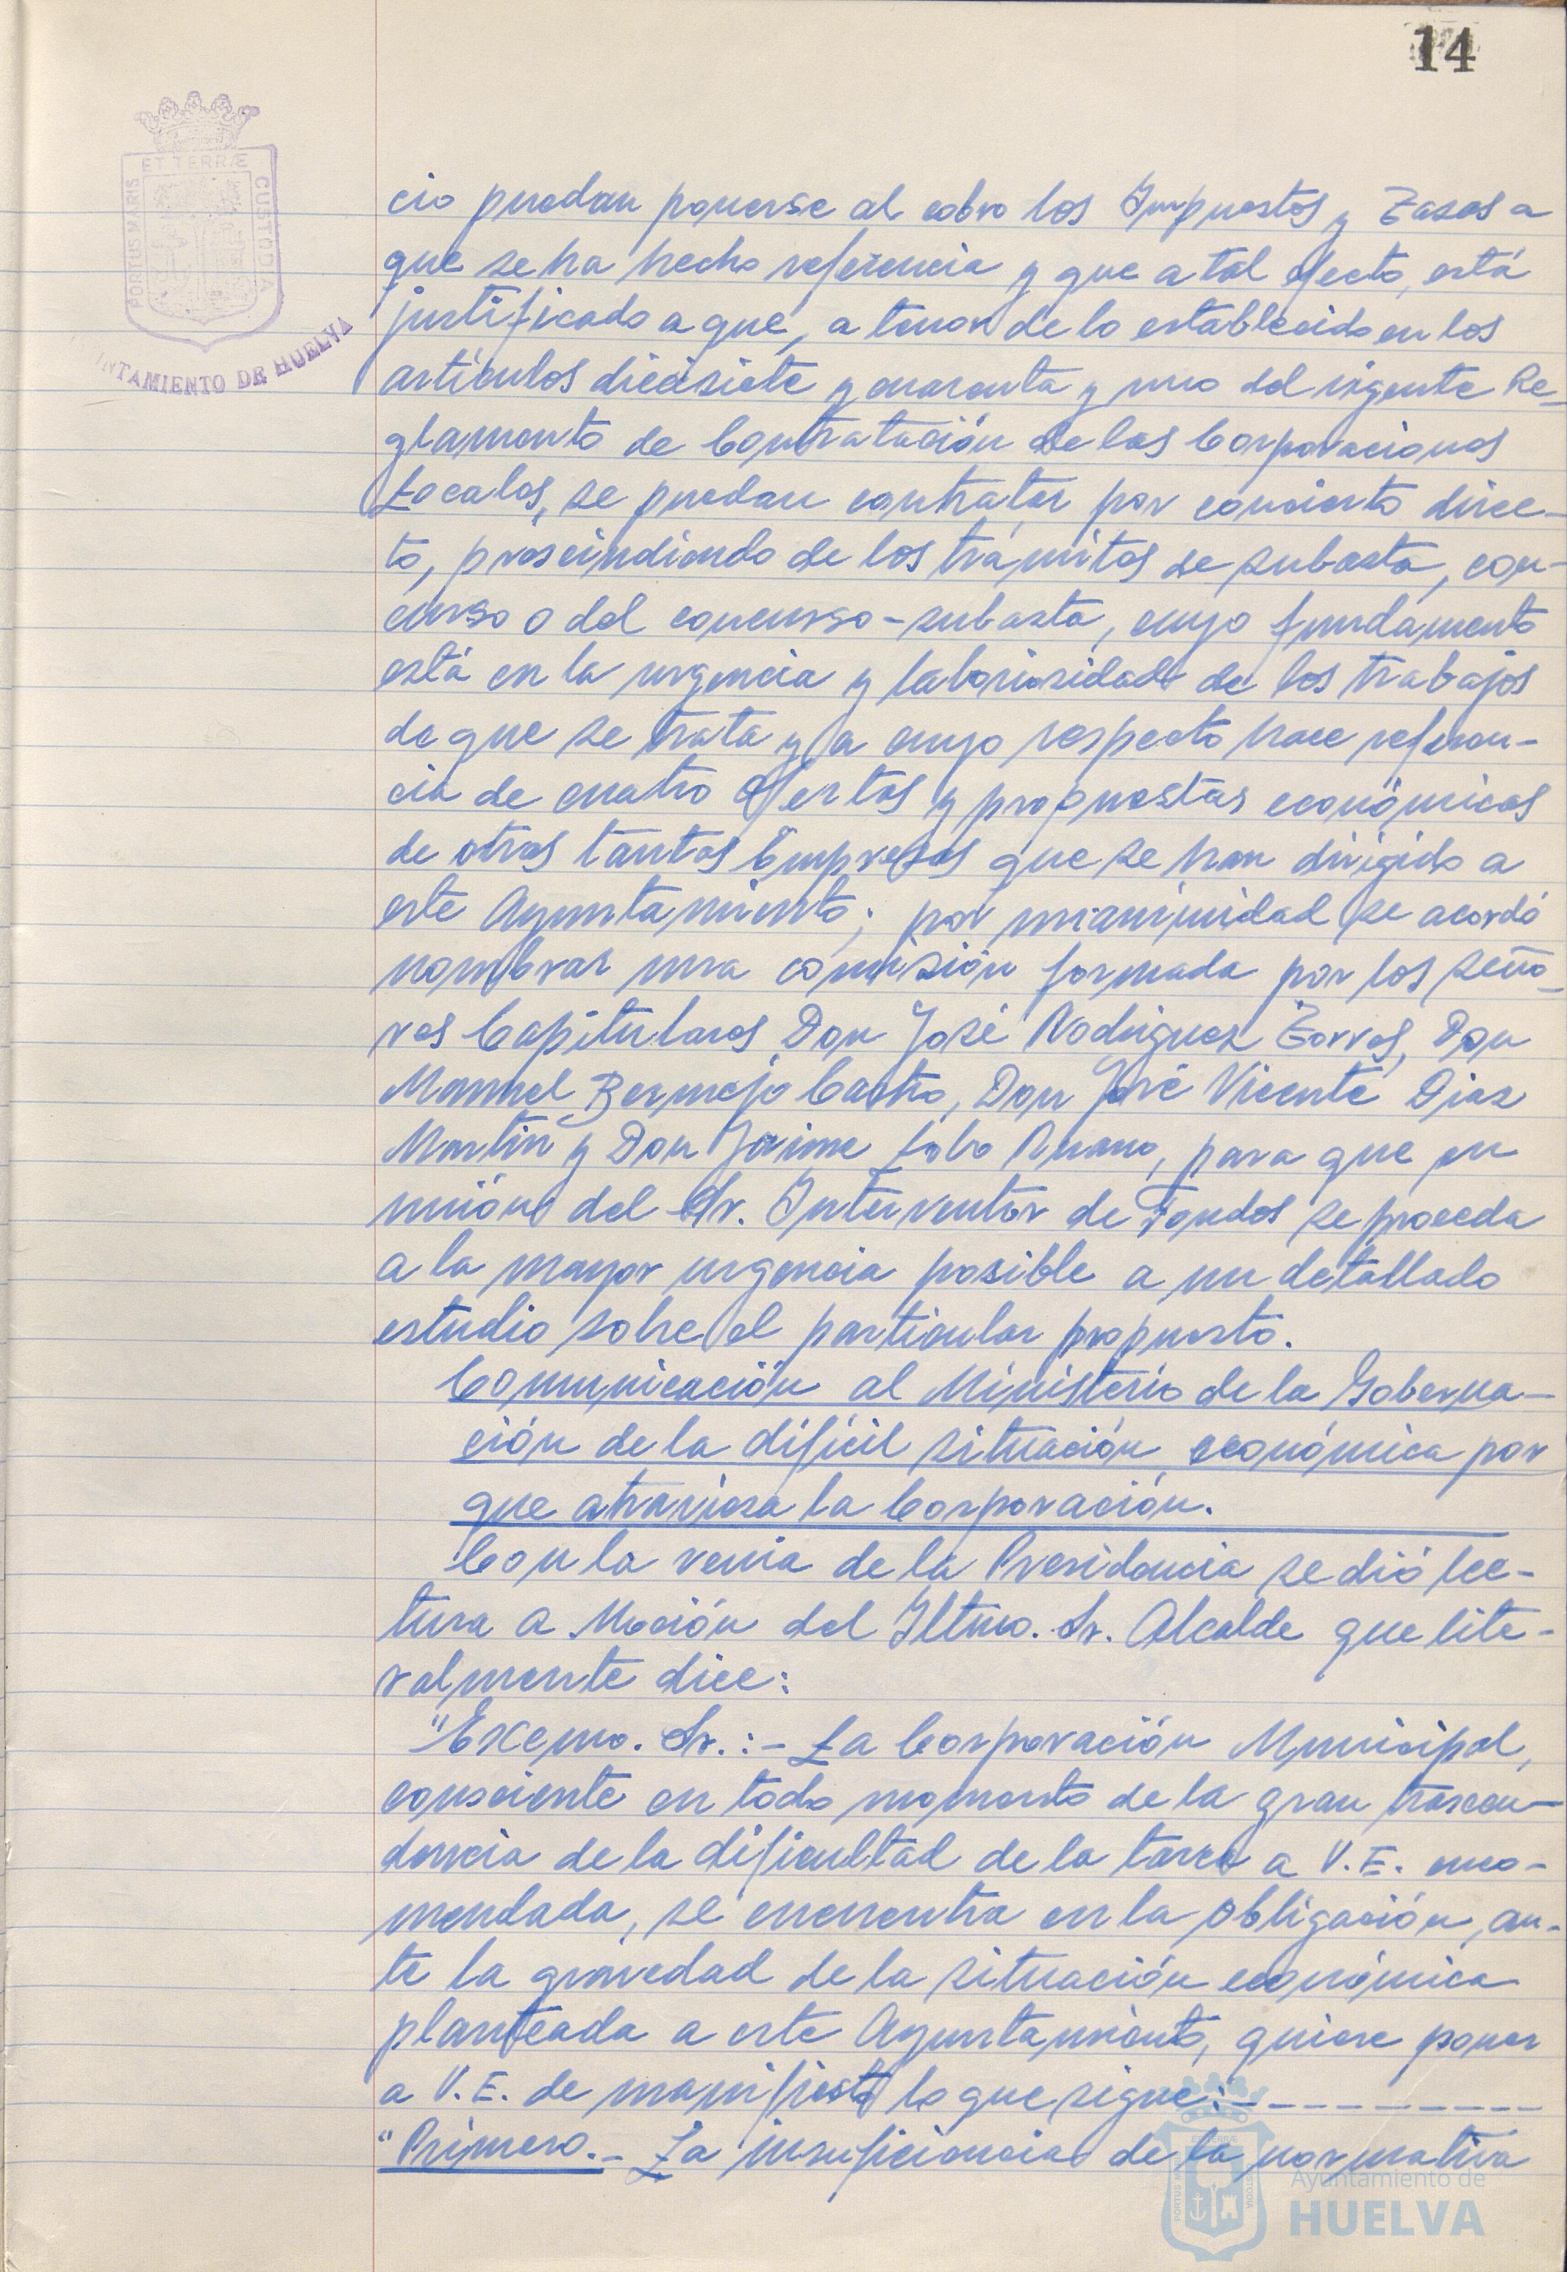 14
ET TERRÆ
PORTUS MARIS
CUSTODIA
NTAMIENTO DE HUELVA
cio puedan ponerse al cobro los Impuestos y Tasas a
que se ha hecho referencia y que a tal efecto, está
justificado a que, a tenor de lo establecido en los
artículos diecisiete y cuarenta y uno del vigente Re-
glamento de Contratación de las Corporaciones
Locales, se puedan contratar por concierto direc-
to, prescindiendo de los trámites de subasta, con-
curso o del concurso-subasta, cuyo fundamento
está en la urgencia y laboriosidad de los trabajos
de que se trata y a cuyo respecto hace referen-
cia de cuatro ofertas y propuestas económicas
de otras tantas Empresas que se han dirigido a
este Ayuntamiento; por unanimidad se acordó
nombrar una comisión formada por los seño-
res Capitulares Don José Rodríguez Torres, Don
Manuel Bermejo Castro, Don José Vicente Díaz
Martín y Don Jaime Lobo Ruano, para que en
unión del Sr. Interventor de Fondos se proceda
a la mayor urgencia posible a un detallado
estudio sobre el particular propuesto.
Comunicación al Ministerio de la Goberna-
ción de la difícil situación económica por
que atraviesa la Corporación.
Con la venia de la Presidencia se dió lec-
tura a Moción del Iltmo. Sr. Alcalde que lite-
ralmente dice:
"Excmo. Sr.:- La Corporación Municipal,
consciente en todo momento de la gran trascen-
dencia de la dificultad de la tarea a V.E. enco-
mendada, se encuentra en la obligación, an-
te la gravedad de la situación económica
planteada a este Ayuntamiento, quiere poner
a V.E. de manifiesto lo que sigue:----------
"Primero.- La insuficiencia de la normativa
Ayuntamiento de
HUELVA